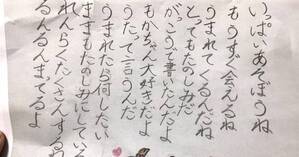 いっぱいあそぼうね
もうすぐ会えるね
うまれてくるんだね
とってもたのしみだ
がっこうで書いたんだよ
もかちゃん大好きだよ
うたって言うんだ
うまれたら何したい
ままもたのしみにしている
れんらくたくさんするわ
るんるんまってるよ